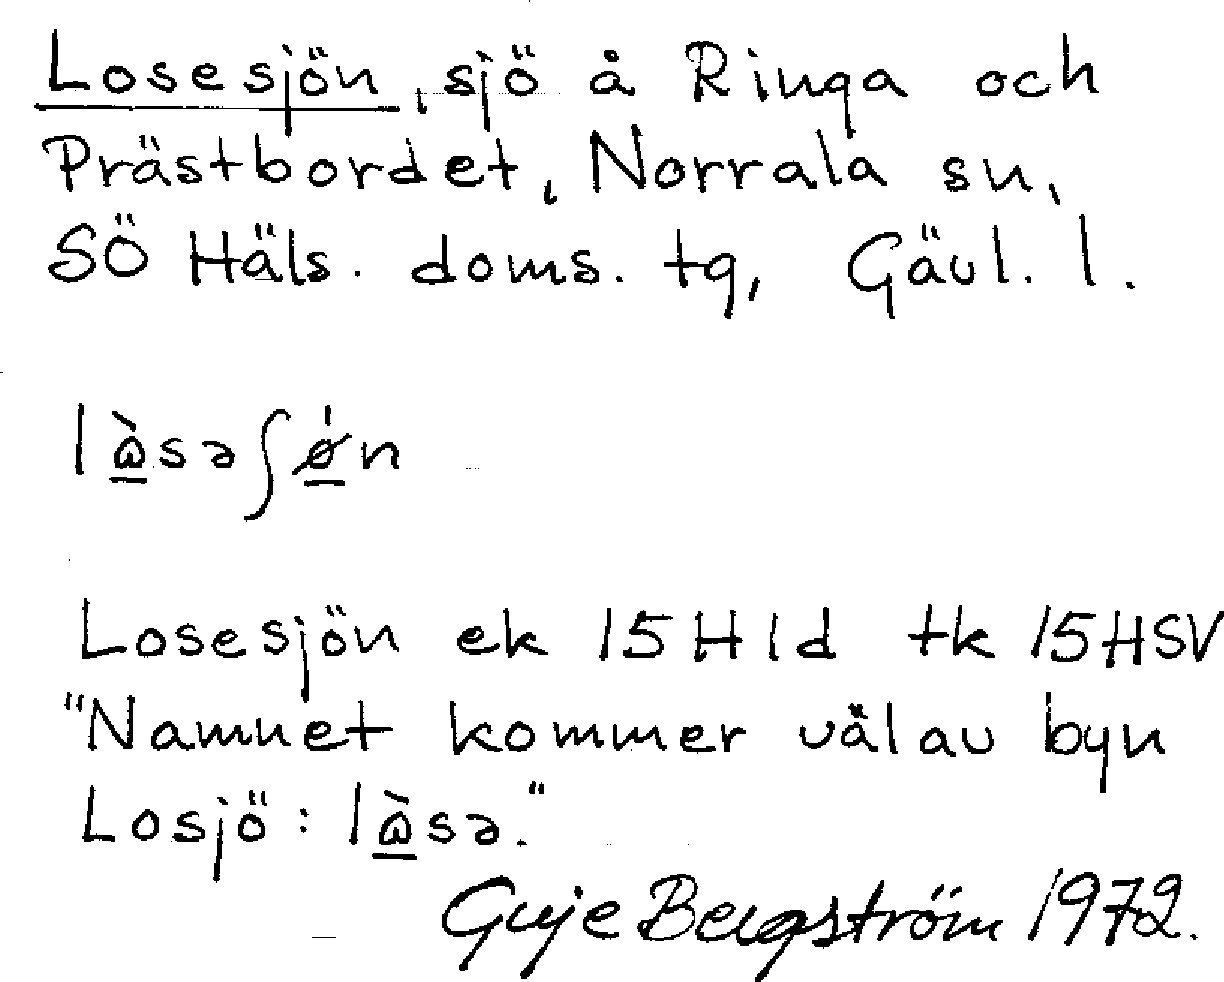 Losesjön, sjö å Ringa och
Prästbordet, Norrala sn,
SÖ Häls. doms. tg, Gävl. l.
lɷ̀səʃǿn
Losesjön ek 15H1d tk 15HSV
"Namnet kommer väl av byn
Losjö: lɷ̀sə."
Guje Bergström 1972.